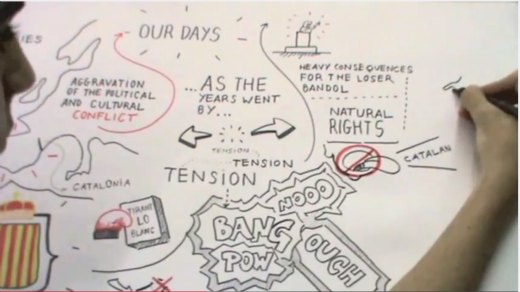 IES
OUR DAYS
AGGRAVATION
OF THE POLITICAL
AND CULTURAL
CONFLICT
...AS THE
YEARS WENT
BY...
HEAVY CONSEQUENCES
FOR THE LOSER
BANDOL
NATURAL
RIGHTS
CATALAN
TENSION
TENSION
TENSION
CATALONIA
TIRANT
LO
BLANC
NOOO
BANG
POW
OUCH